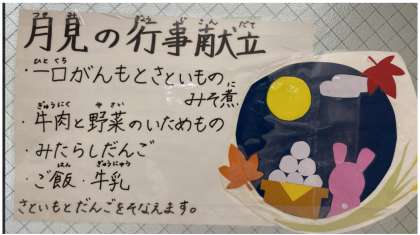 月見の行事献立
・一口がんもとさといもの
みそ煮
・牛肉と野菜のいためもの
・みたらしだんご
・ご飯・牛乳
さといもとだんごをそなえます。